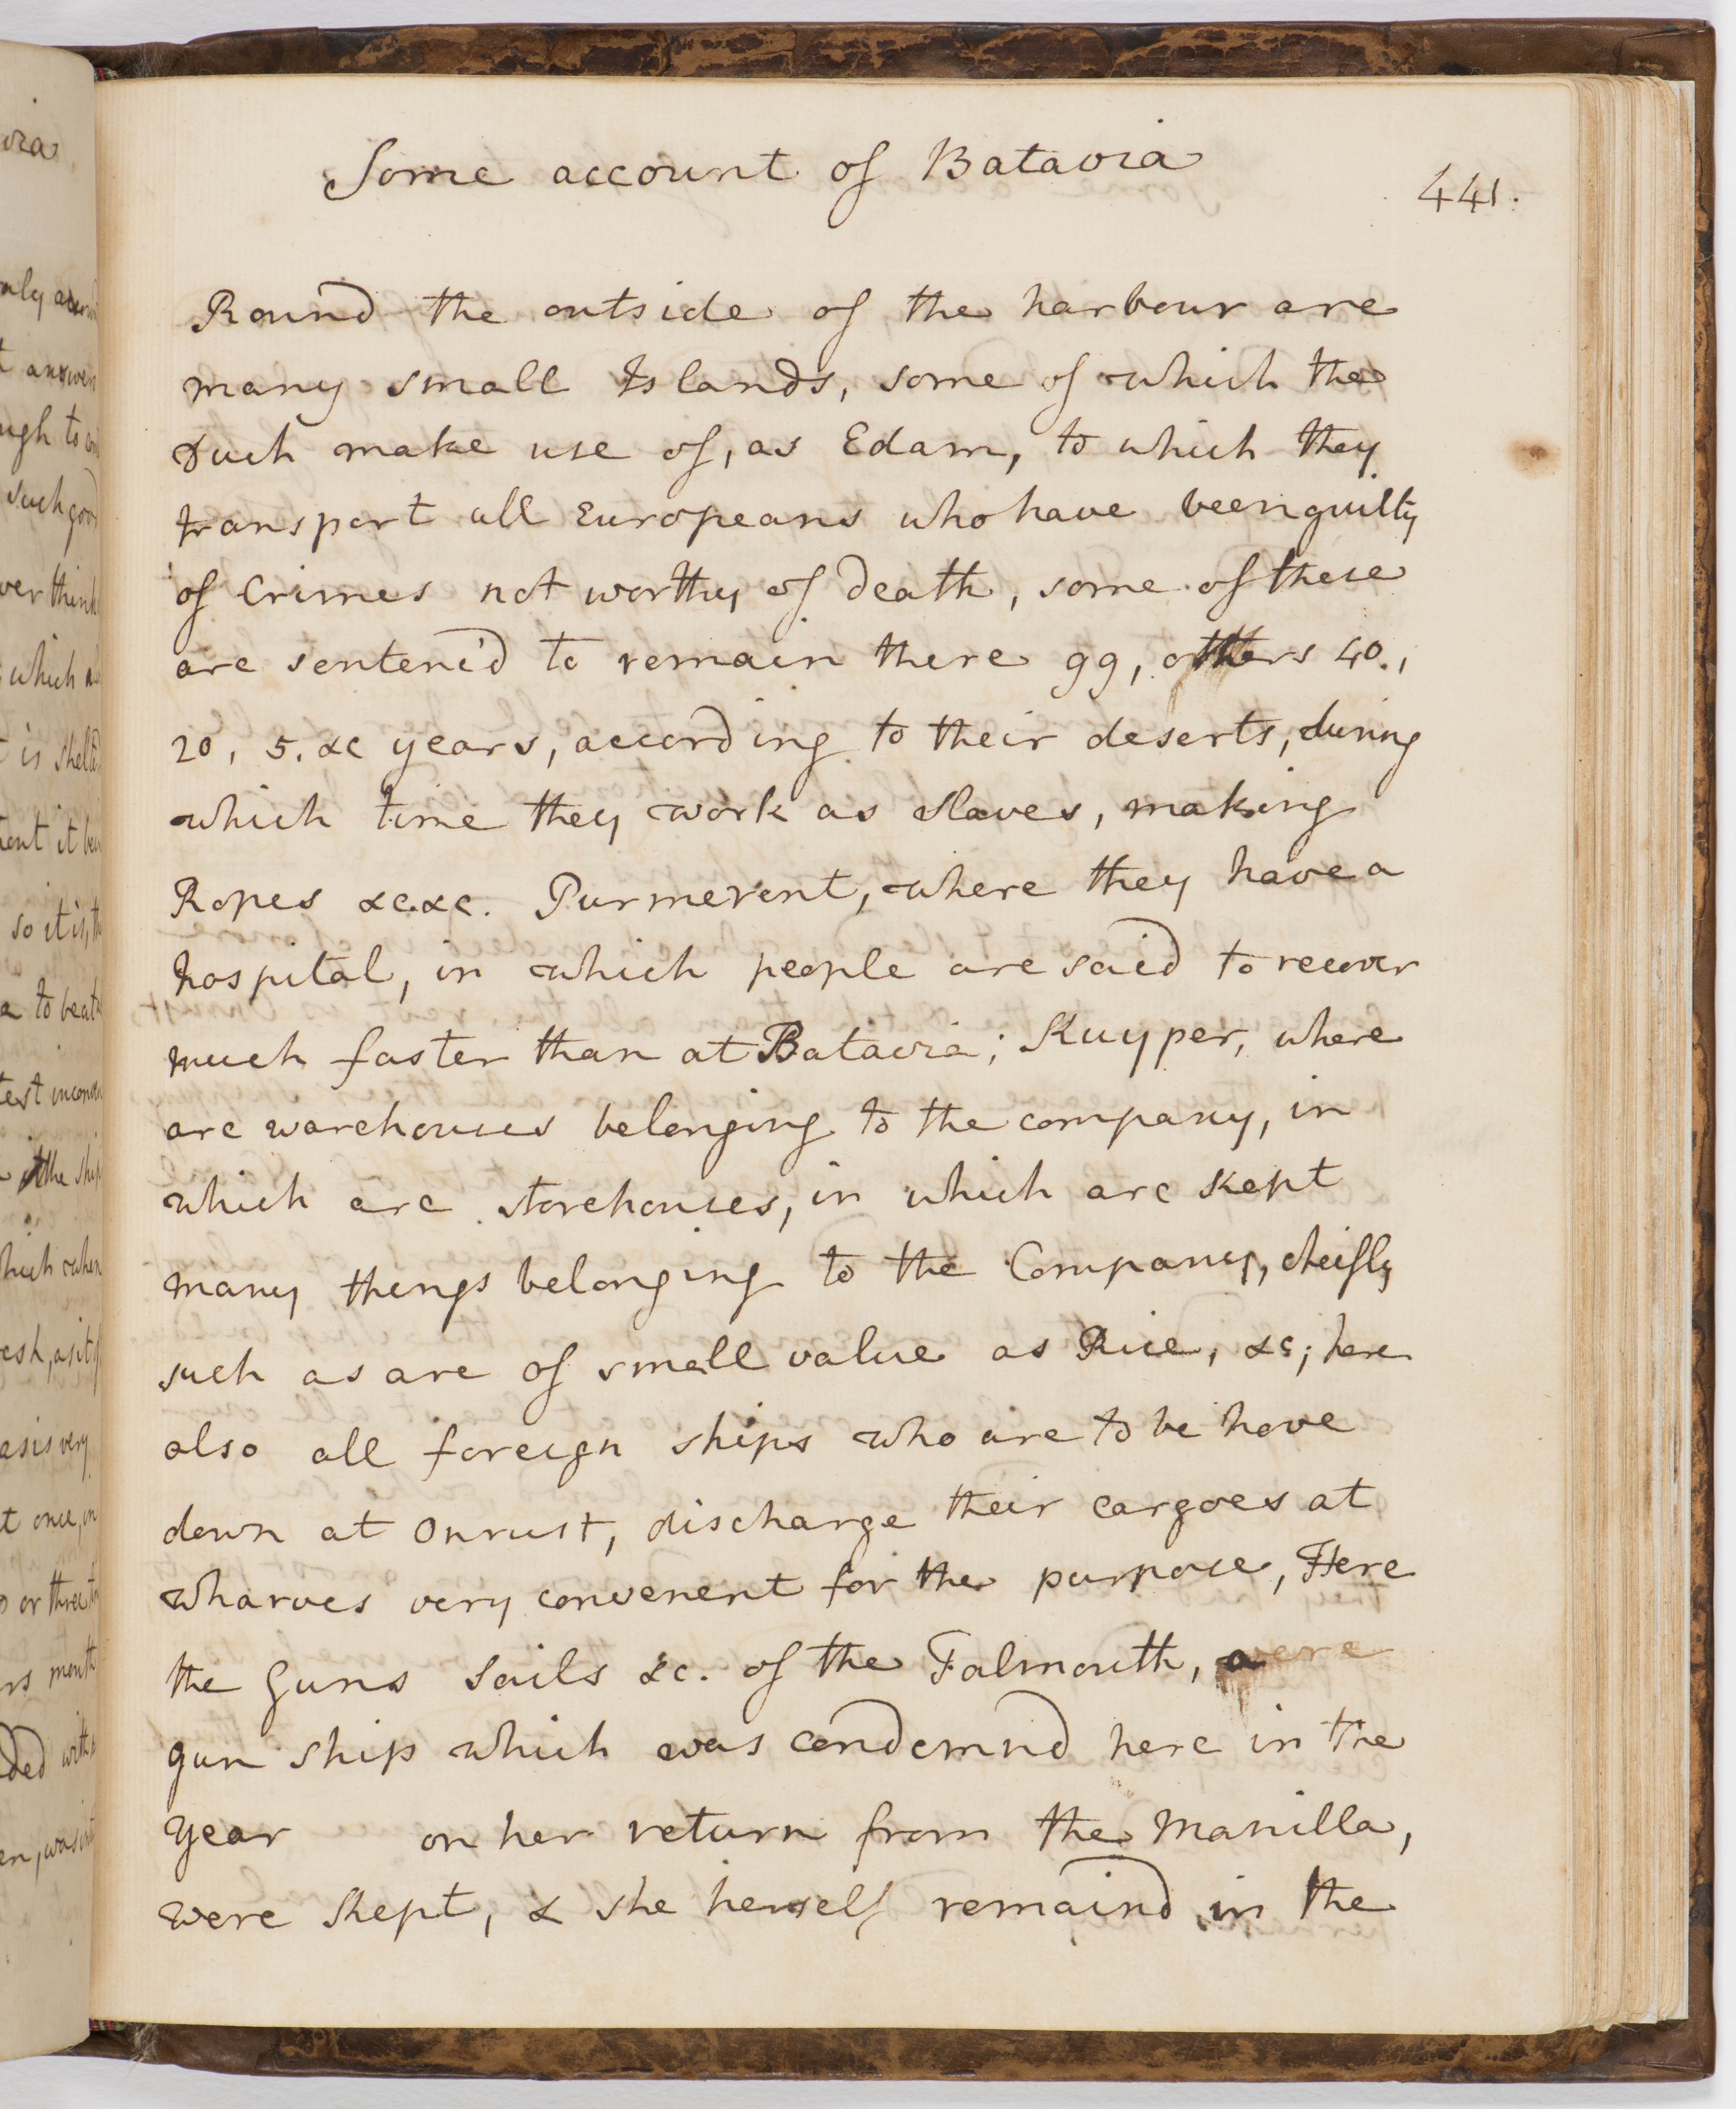 Some account of Batavia
441.
Round the outside of the harbour are
many small Islands, some of which the
Duch make use of, as Edam, to which they
transport all Europeans who have been guilty
of Crimes not worthy of death, some of these
are sentenc'd to remain there 99, others 40.,
20, 5. &c years, according to their deserts, during
which time they work as slaves, making
Ropes &c. &c. Purmerent, where they have a
hospital, in which people are said to recover
much faster than at Batavia; Kuyper, where
are warehouses belonging to the company, in
which are storehouses, in which are kept
many things belonging to the Company, cheifly
such as are of small value as Rice, &c; here
also all foreign ships who are to be hove
down at Onrust, discharge their cargoes at
wharves very convenent for the purpose, Here
the Guns Sails &c. of the Falmouth, a
gun ship which was condemnd here in the
year on her return from the Manilla,
were kept, & she herself remaind in the